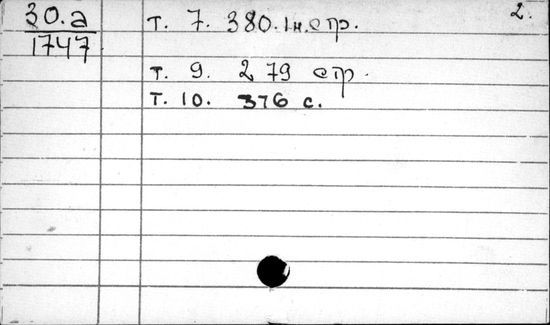 30.а т. 7. 380. 1н. стр. 2.
1747
т. 9. 279 стр.
т. 10. 376 с.